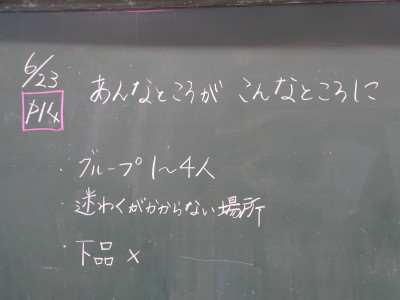 6/23
P14 あんなところが こんなところに
・グループ1〜4人
・迷わくがかからない場所
・下品×